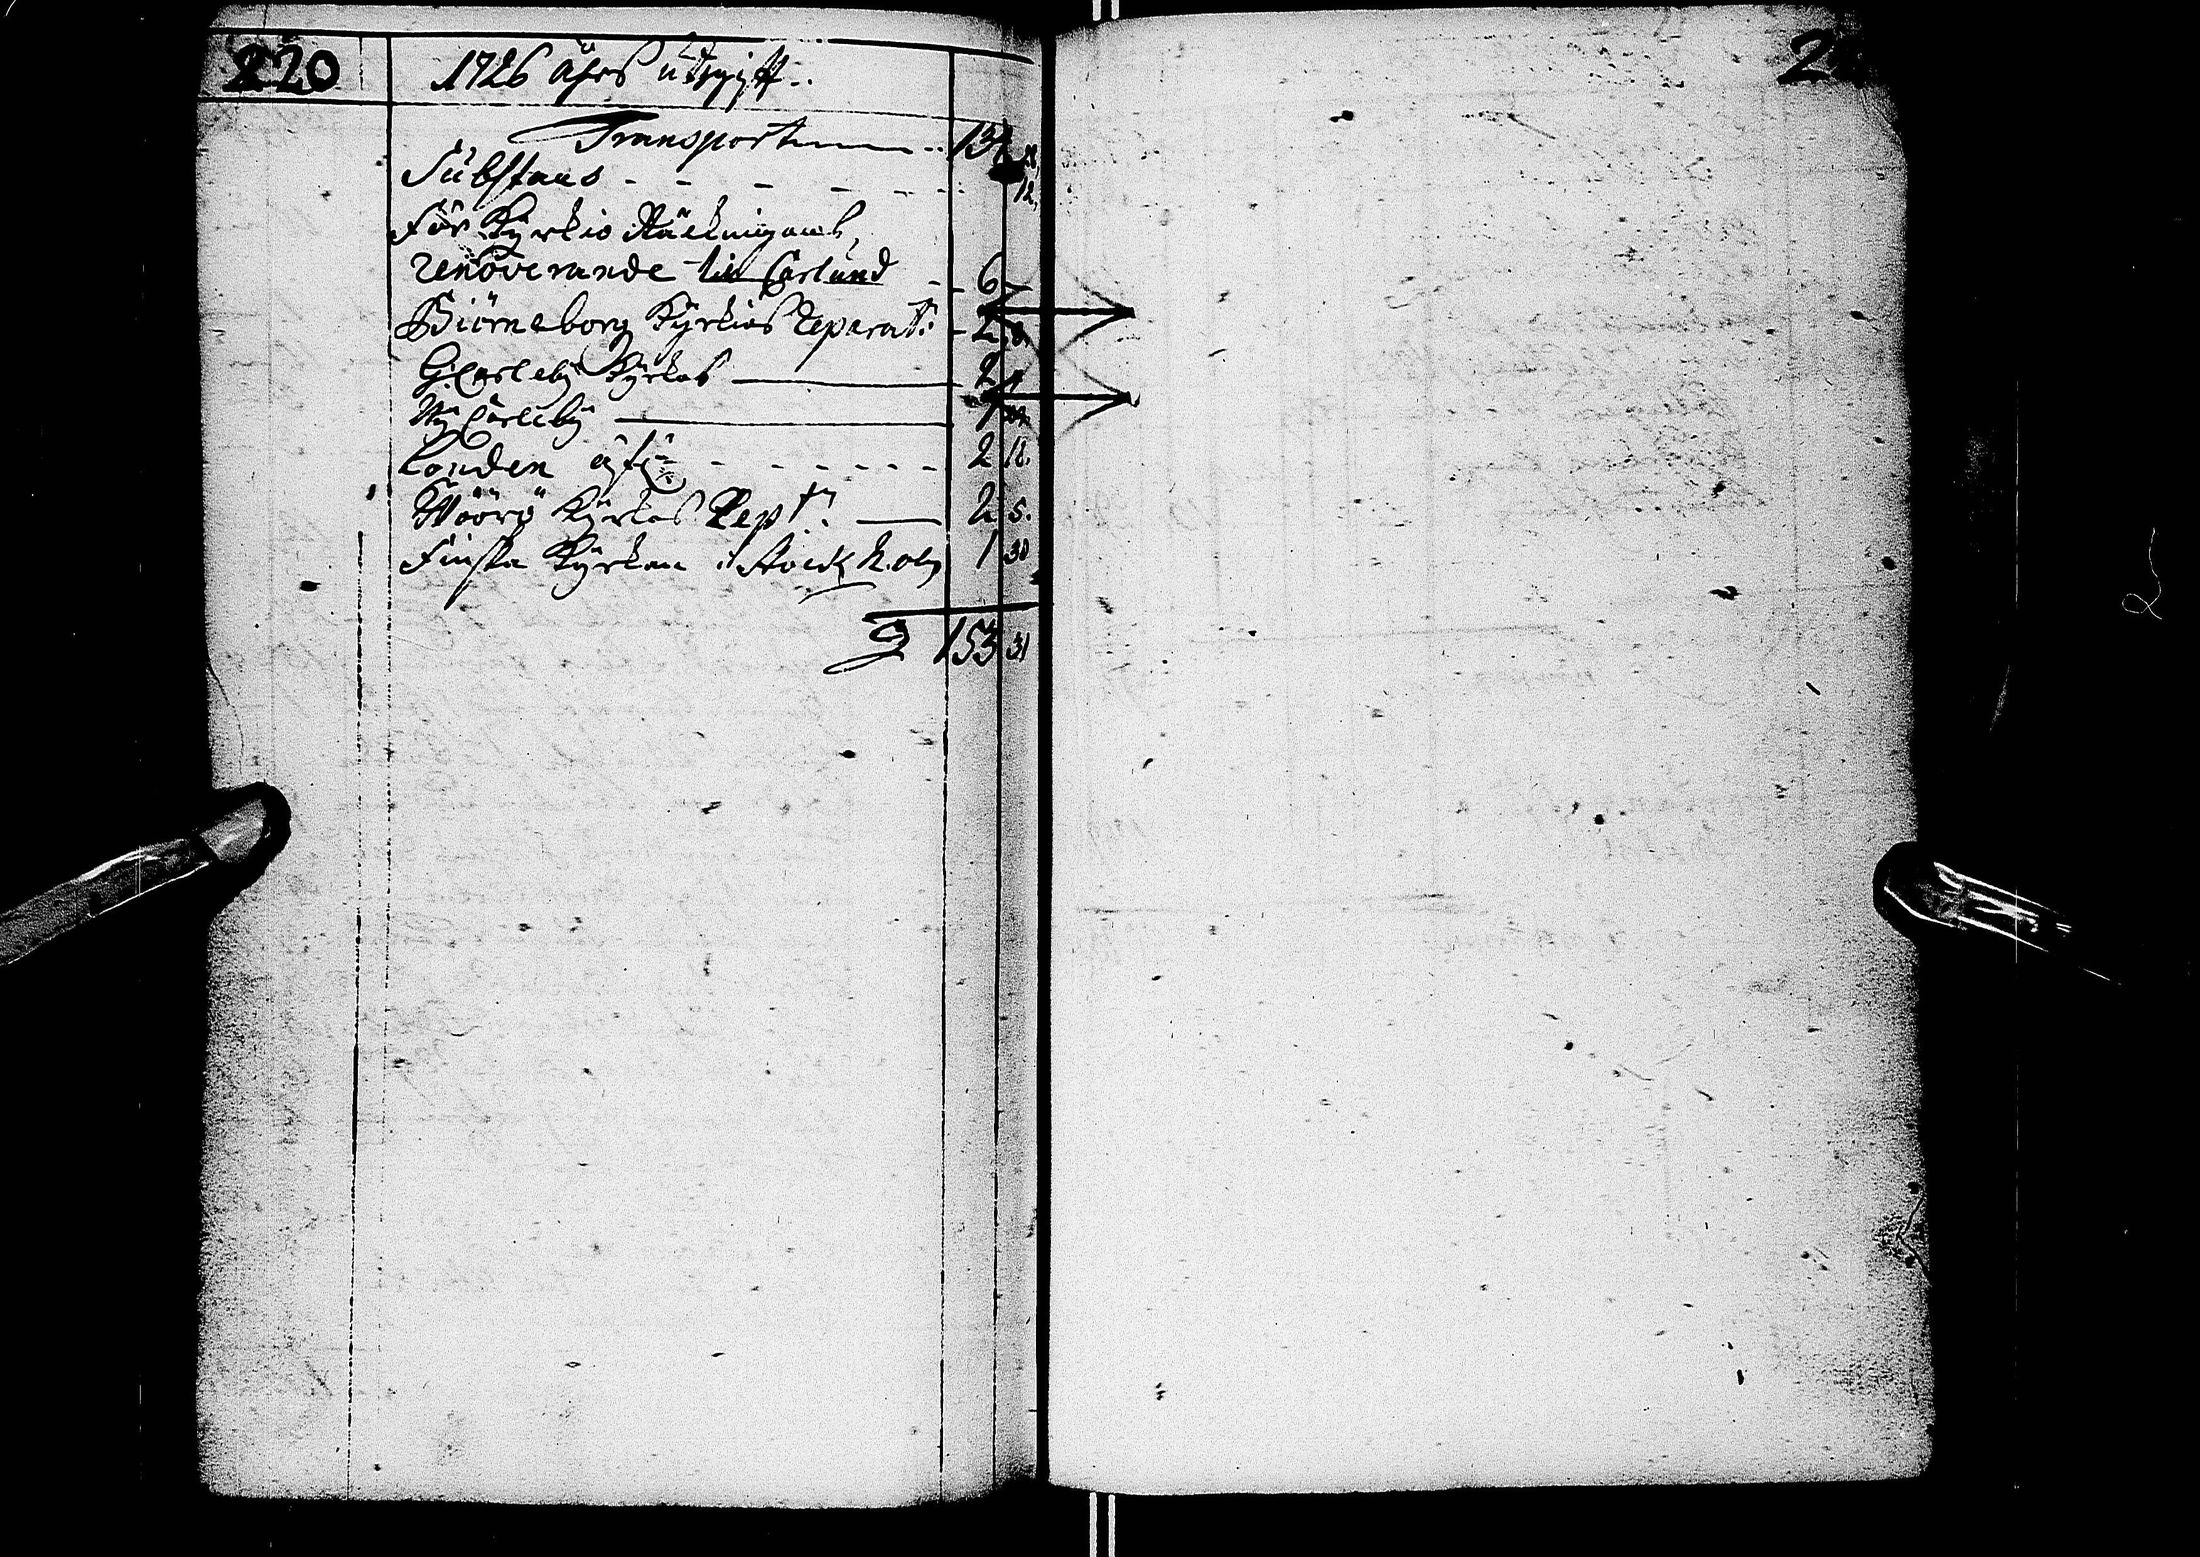 220
1726 åhrs Utgift.
Transport 134
Substans 12.
För Kyrkio Räkningarnes
renoverande till Carlund 6
Biörneborg Kyrkios Reparat: 2
G: Carleby Kyrkas 2
Ny Carleby 1
2 18.
Wöörå Kyrkas Rept: 2 5.
Finska Kyrkan i Stockholm 1 30
153 31
2